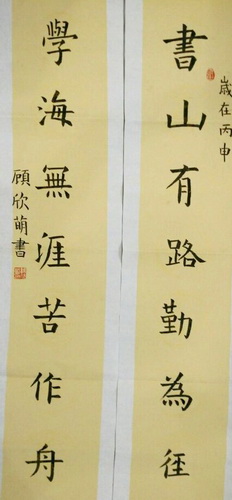 歲在丙申
書山有路勤為徑
學海無涯苦作舟
顧欣萌書